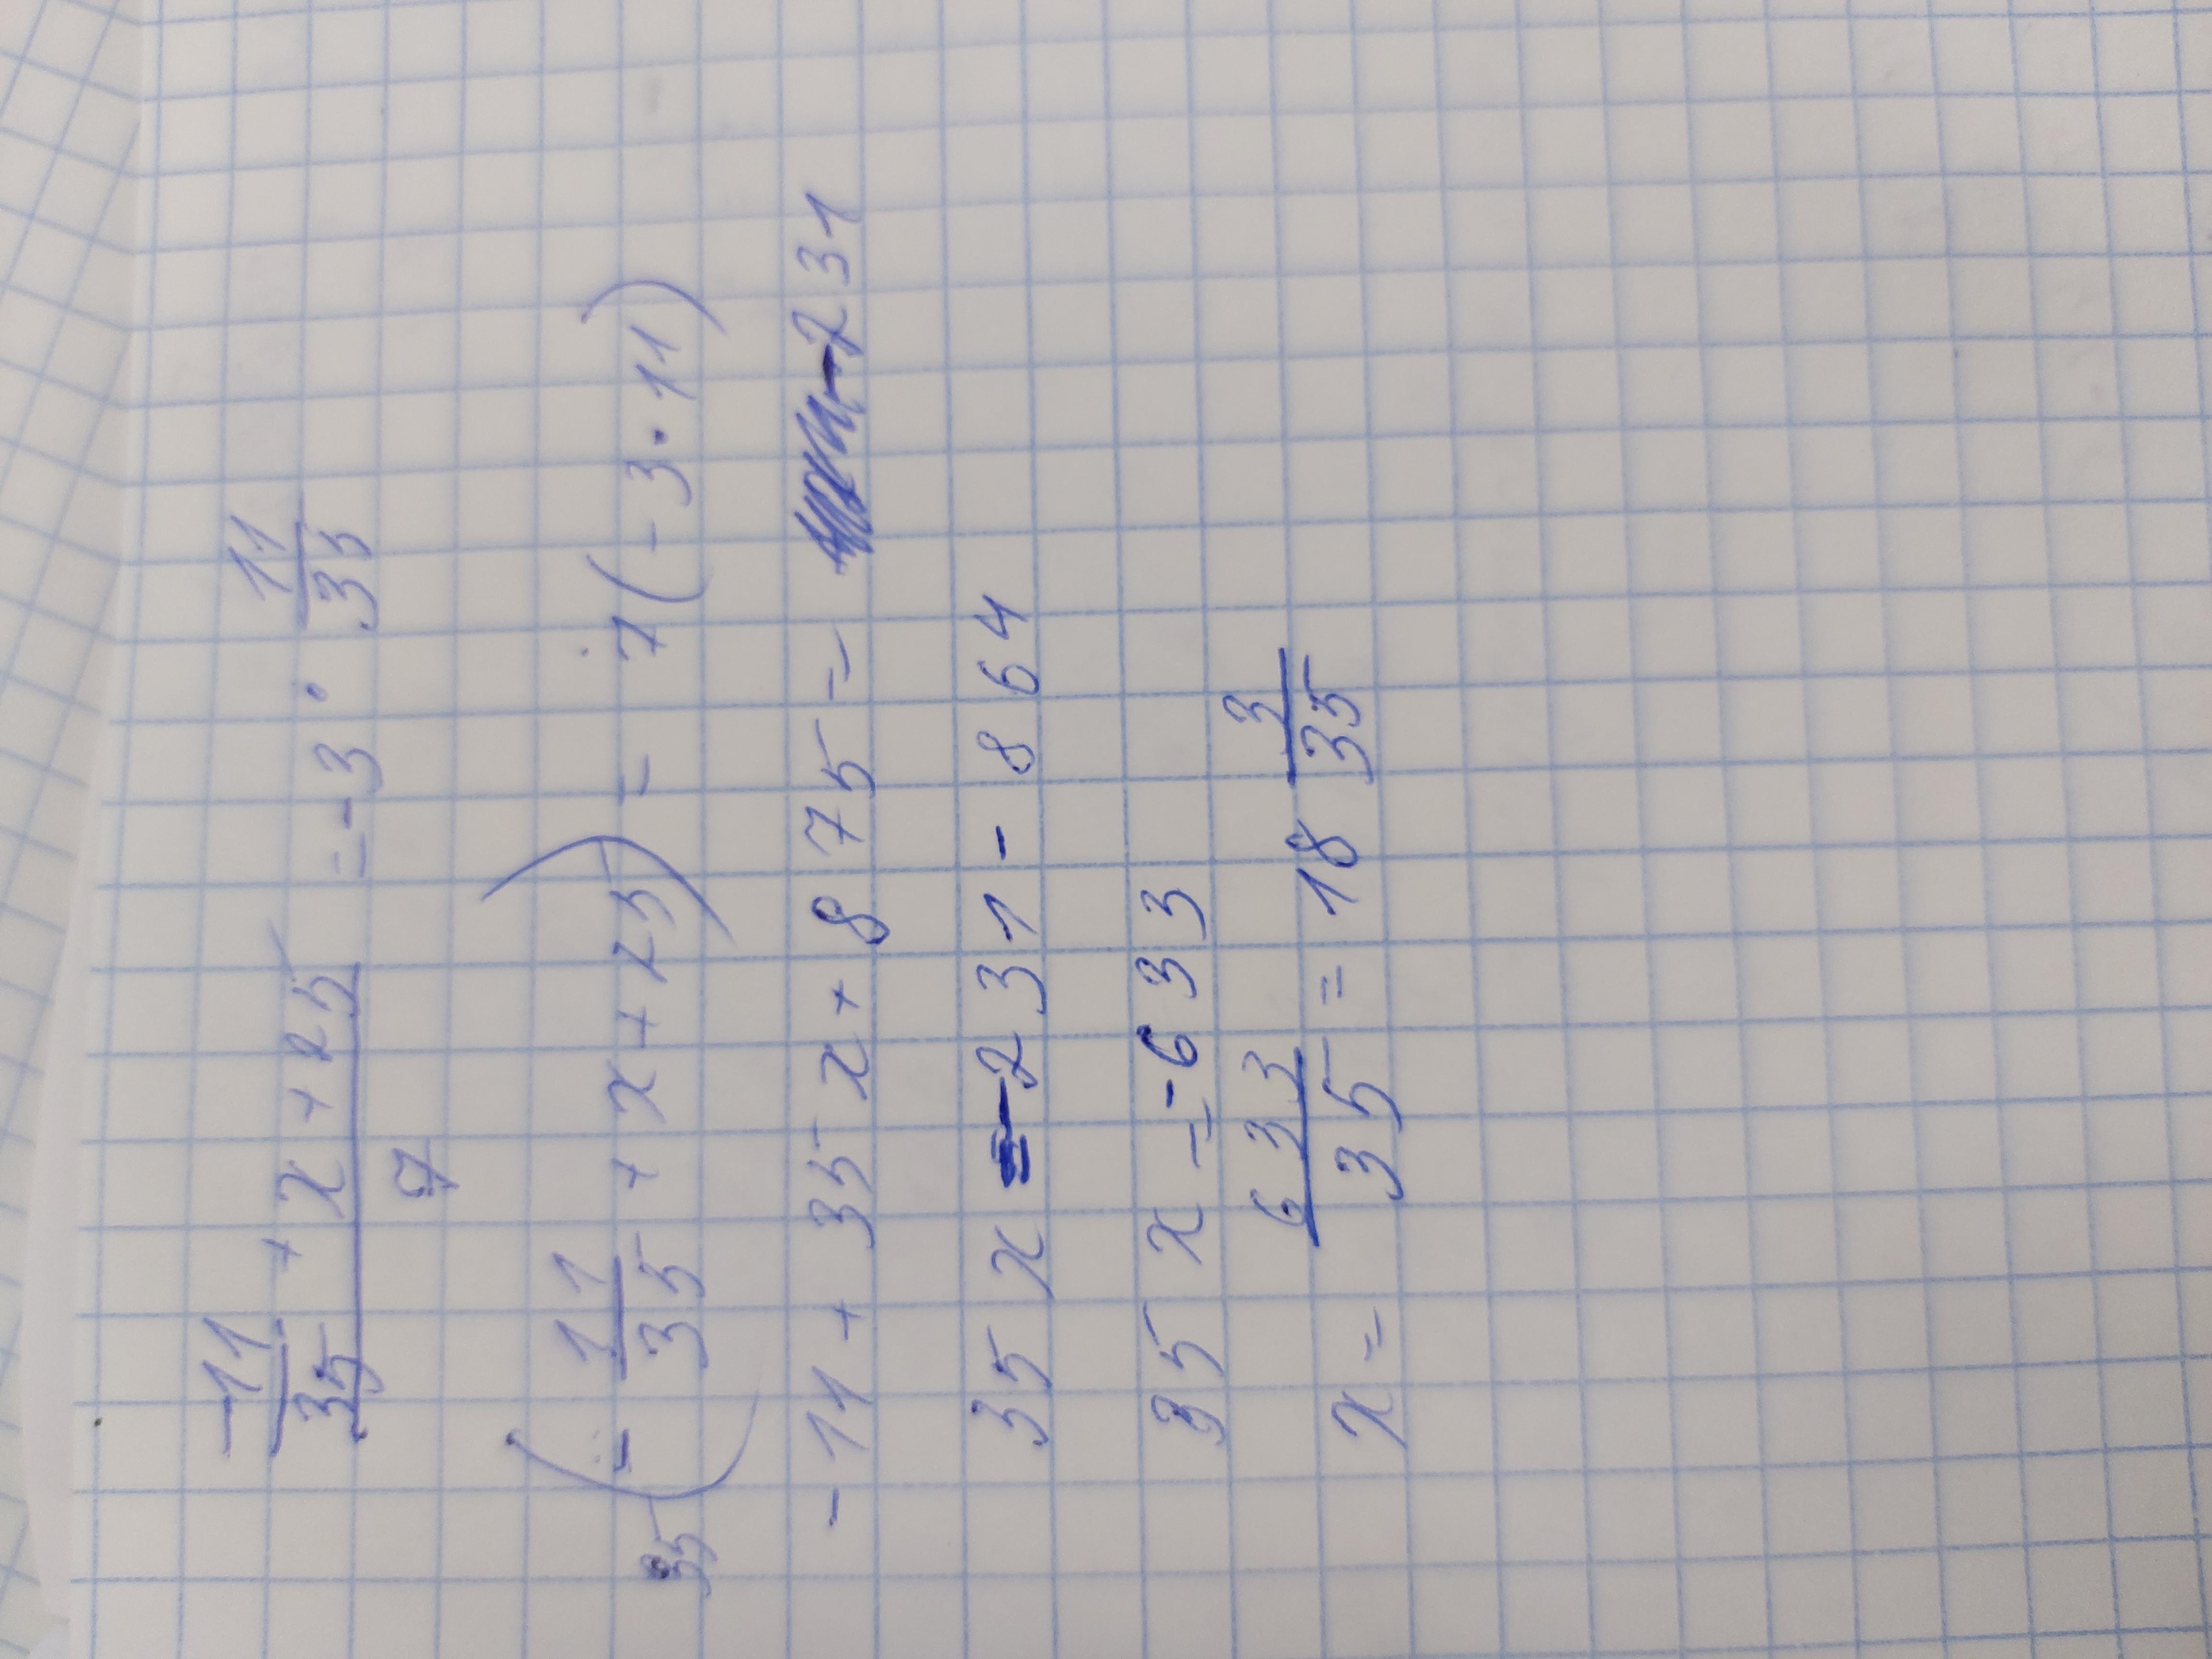 (-11/35 + x + 25)/7 = -3 · 11/35
35(-11/35 + x + 25) = 7(-3·11)
-11 + 35x + 875 = -231
35x = -231 - 864
35x = -633
x = 633/35 = 18 3/35